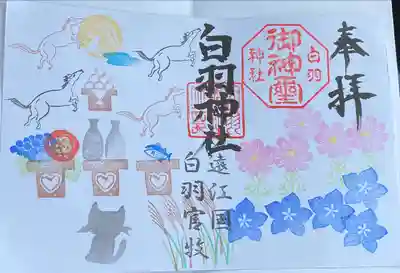 奉拝
白羽
御神璽
神社
白羽神社
遠江國
白羽官牧